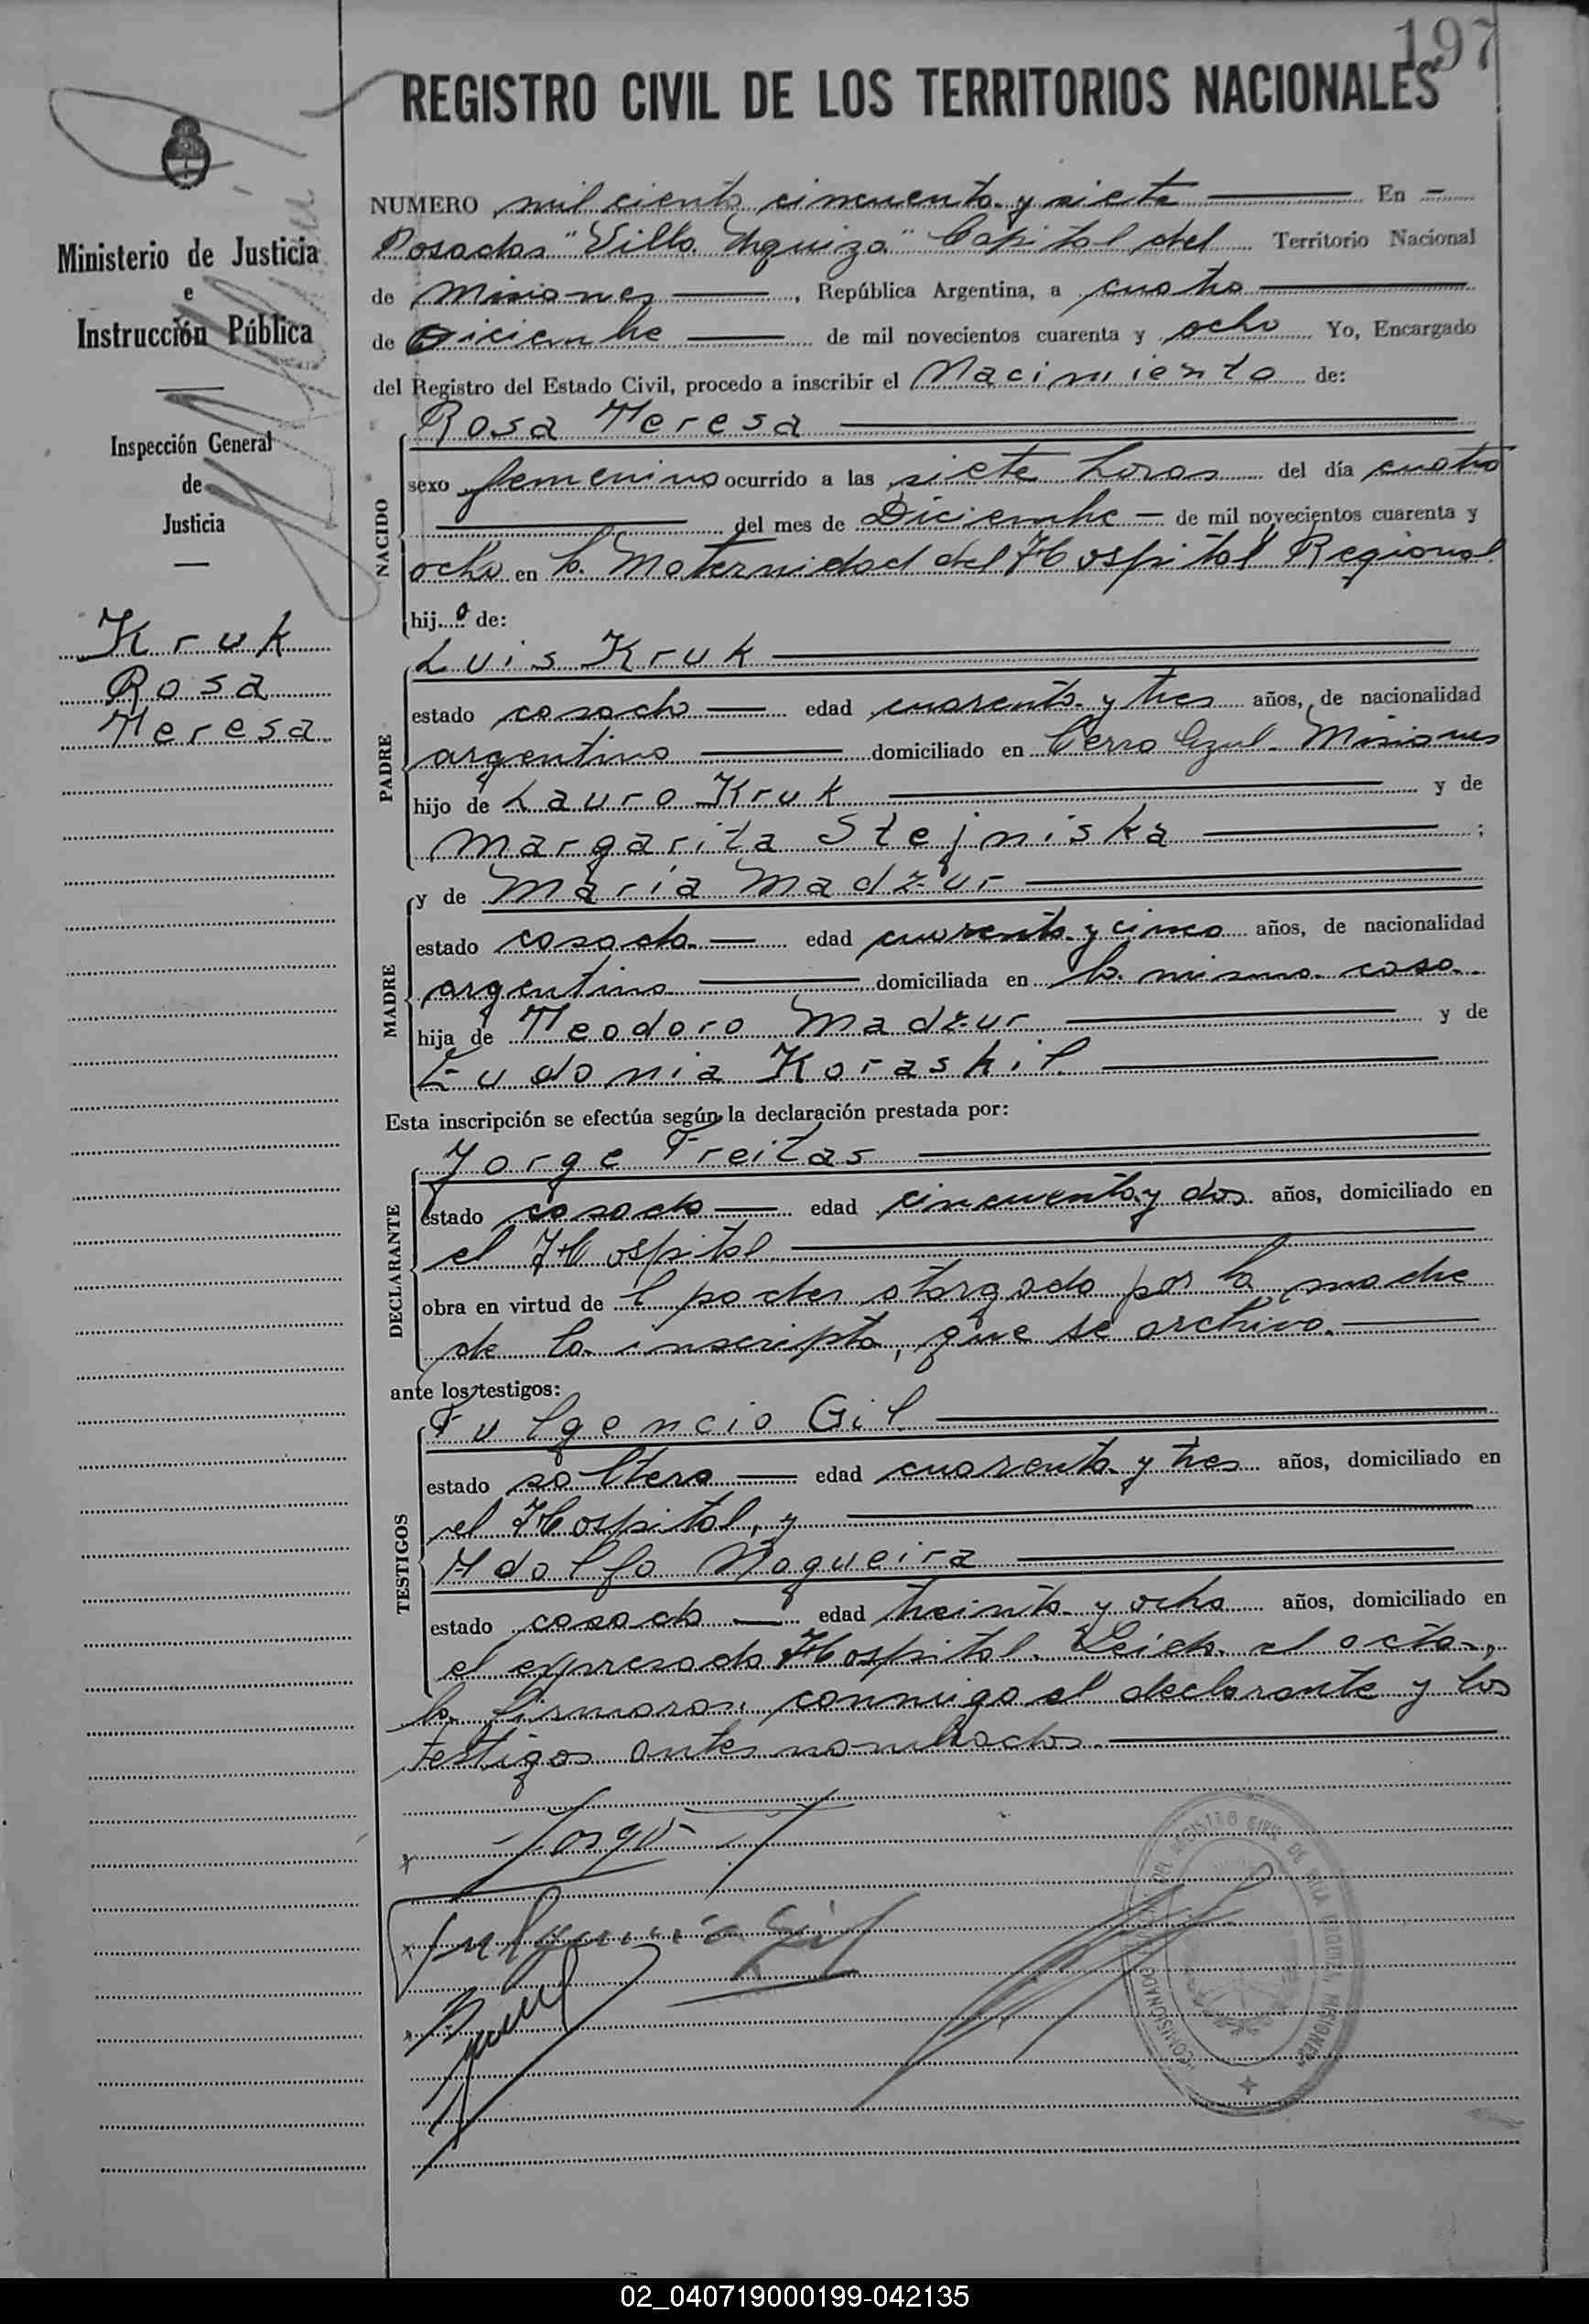 197
REGISTRO CIVIL DE LOS TERRITORIOS NACIONALES
Ministerio de Justicia
e
Instrucción Pública
Inspección General
de
Justicia
Kruk
Rosa
Teresa
NUMERO mil ciento cincuenta y siete En
Posadas "Villa Urquiza" Capital del Territorio Nacional
de Misiones, República Argentina, a cuatro
de Diciembre de mil novecientos cuarenta y ocho Yo, Encargado
del Registro del Estado Civil, procedo a inscribir el Nacimiento de:
NACIDO
Rosa Teresa
sexo femenino ocurrido a las siete horas del día cuatro
del mes de Diciembre de mil novecientos cuarenta y
ocho en la Maternidad del Hospital Regional
hija de:
PADRE
Luis Kruk
estado casado edad cuarenta y tres años, de nacionalidad
argentino domiciliado en Cerro Azul Misiones
hijo de Lauro Kruk y de
Margarita Stejniska;
MADRE
y de María Madzur
estado casada edad cuarenta y cinco años, de nacionalidad
argentina domiciliada en la misma casa
hija de Teodoro Madzur y de
Eudonia Koraskil
Esta inscripción se efectúa según la declaración prestada por:
DECLARANTE
Jorge Freitas
estado casado edad cincuenta y dos años, domiciliado en
el Hospital
obra en virtud de l poder otorgado por la madre
de la inscripta, que se archiva.
ante los testigos:
TESTIGOS
Fulgencio Gil
estado soltero edad cuarenta y tres años, domiciliado en
el Hospital, y
Adolfo Nogueira
estado casado edad treinta y ocho años, domiciliado en
el expresado Hospital. Leida el acta,
la firmaron conmigo el declarante y los
testigos antes nombrados.
Jorge F
Fulgencio Gil
DEL REGISTRO CIVIL DE VILLA URQUIZA, MISIONES
COMISIONADO
02_040719000199-042135